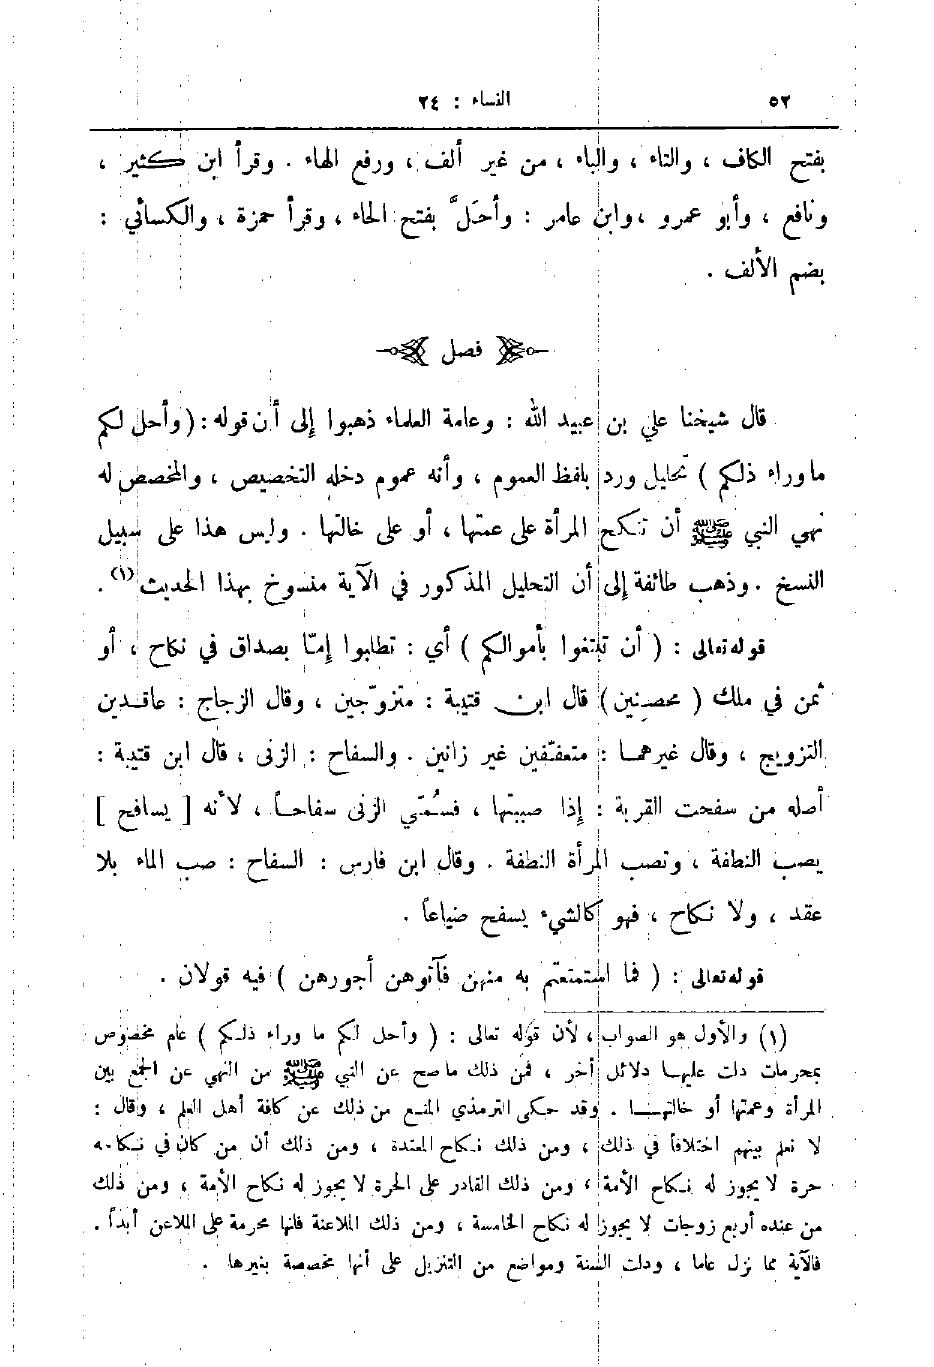 ٥٢ النساء : ٢٤
بفتح الكاف ، والتاء ، والباء ، من غير ألف ، ورفع الهاء . وقرأ ابن كثير ،
ونافع ، وأبو عمرو ، وابن عامر : وأحَلَّ بفتح الحاء ، وقرأ حمزة ، والكسائي :
بضم الألف .
فصل
قال شيخنا علي بن عبيد الله : وعامة العلماء ذهبوا إلى أن قوله : ( وأحل لكم
ما وراء ذلكم ) تحليل ورد بلفظ العموم ، وأنه عموم دخله التخصيص ، والمخصص له
نهي النبي ﷺ أن تنكح المرأة على عمتها ، أو على خالتها . وليس هذا على سبيل
النسخ . وذهب طائفة إلى أن التحليل المذكور في الآية منسوخ بهذا الحديث (١) .
قوله تعالى : ( أن تبتغوا بأموالكم ) أي : تطلبوا إمّا بصداق في نكاح ، أو
ثمن في ملك ( محصنين ) قال ابن قتيبة : متزوّجين ، وقال الزجاج : عاقدين
التزويج ، وقال غيرهما : متعفّفين غير زانين . والسفاح : الزنى ، قال ابن قتيبة :
أصله من سفحت القربة : إذا صببتها ، فسُمّي الزنى سفاحاً ، لأنه [ يسافح ]
يصب النطفة ، وتصب المرأة النطفة . وقال ابن فارس : السفاح : صب الماء بلا
عقد ، ولا نكاح ، فهو كالشيء يسفح ضياعاً .
قوله تعالى : ( فما استمتعتم به منهن فآتوهن أجورهن ) فيه قولان .
(١) والأول هو الصواب ، لأن قوله تعالى : ( وأحل لكم ما وراء ذلكم ) عام مخصوص
بمحرمات دلت عليها دلائل أخر ، فمن ذلك ما صح عن النبي ﷺ من النهي عن الجمع بين
المرأة وعمتها أو خالتها . وقد حكى الترمذي المنع من ذلك عن كافة أهل العلم ، وقال :
لا نعلم بينهم اختلافاً في ذلك ، ومن ذلك نكاح المعتدة ، ومن ذلك أن من كان في نكاحه
حرة لا يجوز له نكاح الأمة ، ومن ذلك القادر على الحرة لا يجوز له نكاح الأمة ، ومن ذلك
من عنده أربع زوجات لا يجوز له نكاح الخامسة ، ومن ذلك الملاعنة فانها محرمة على الملاعن أبداً .
فالآية مما نزل عاما ، ودلت السنة ومواضع من التنزيل على أنها مخصصة بغيرها .